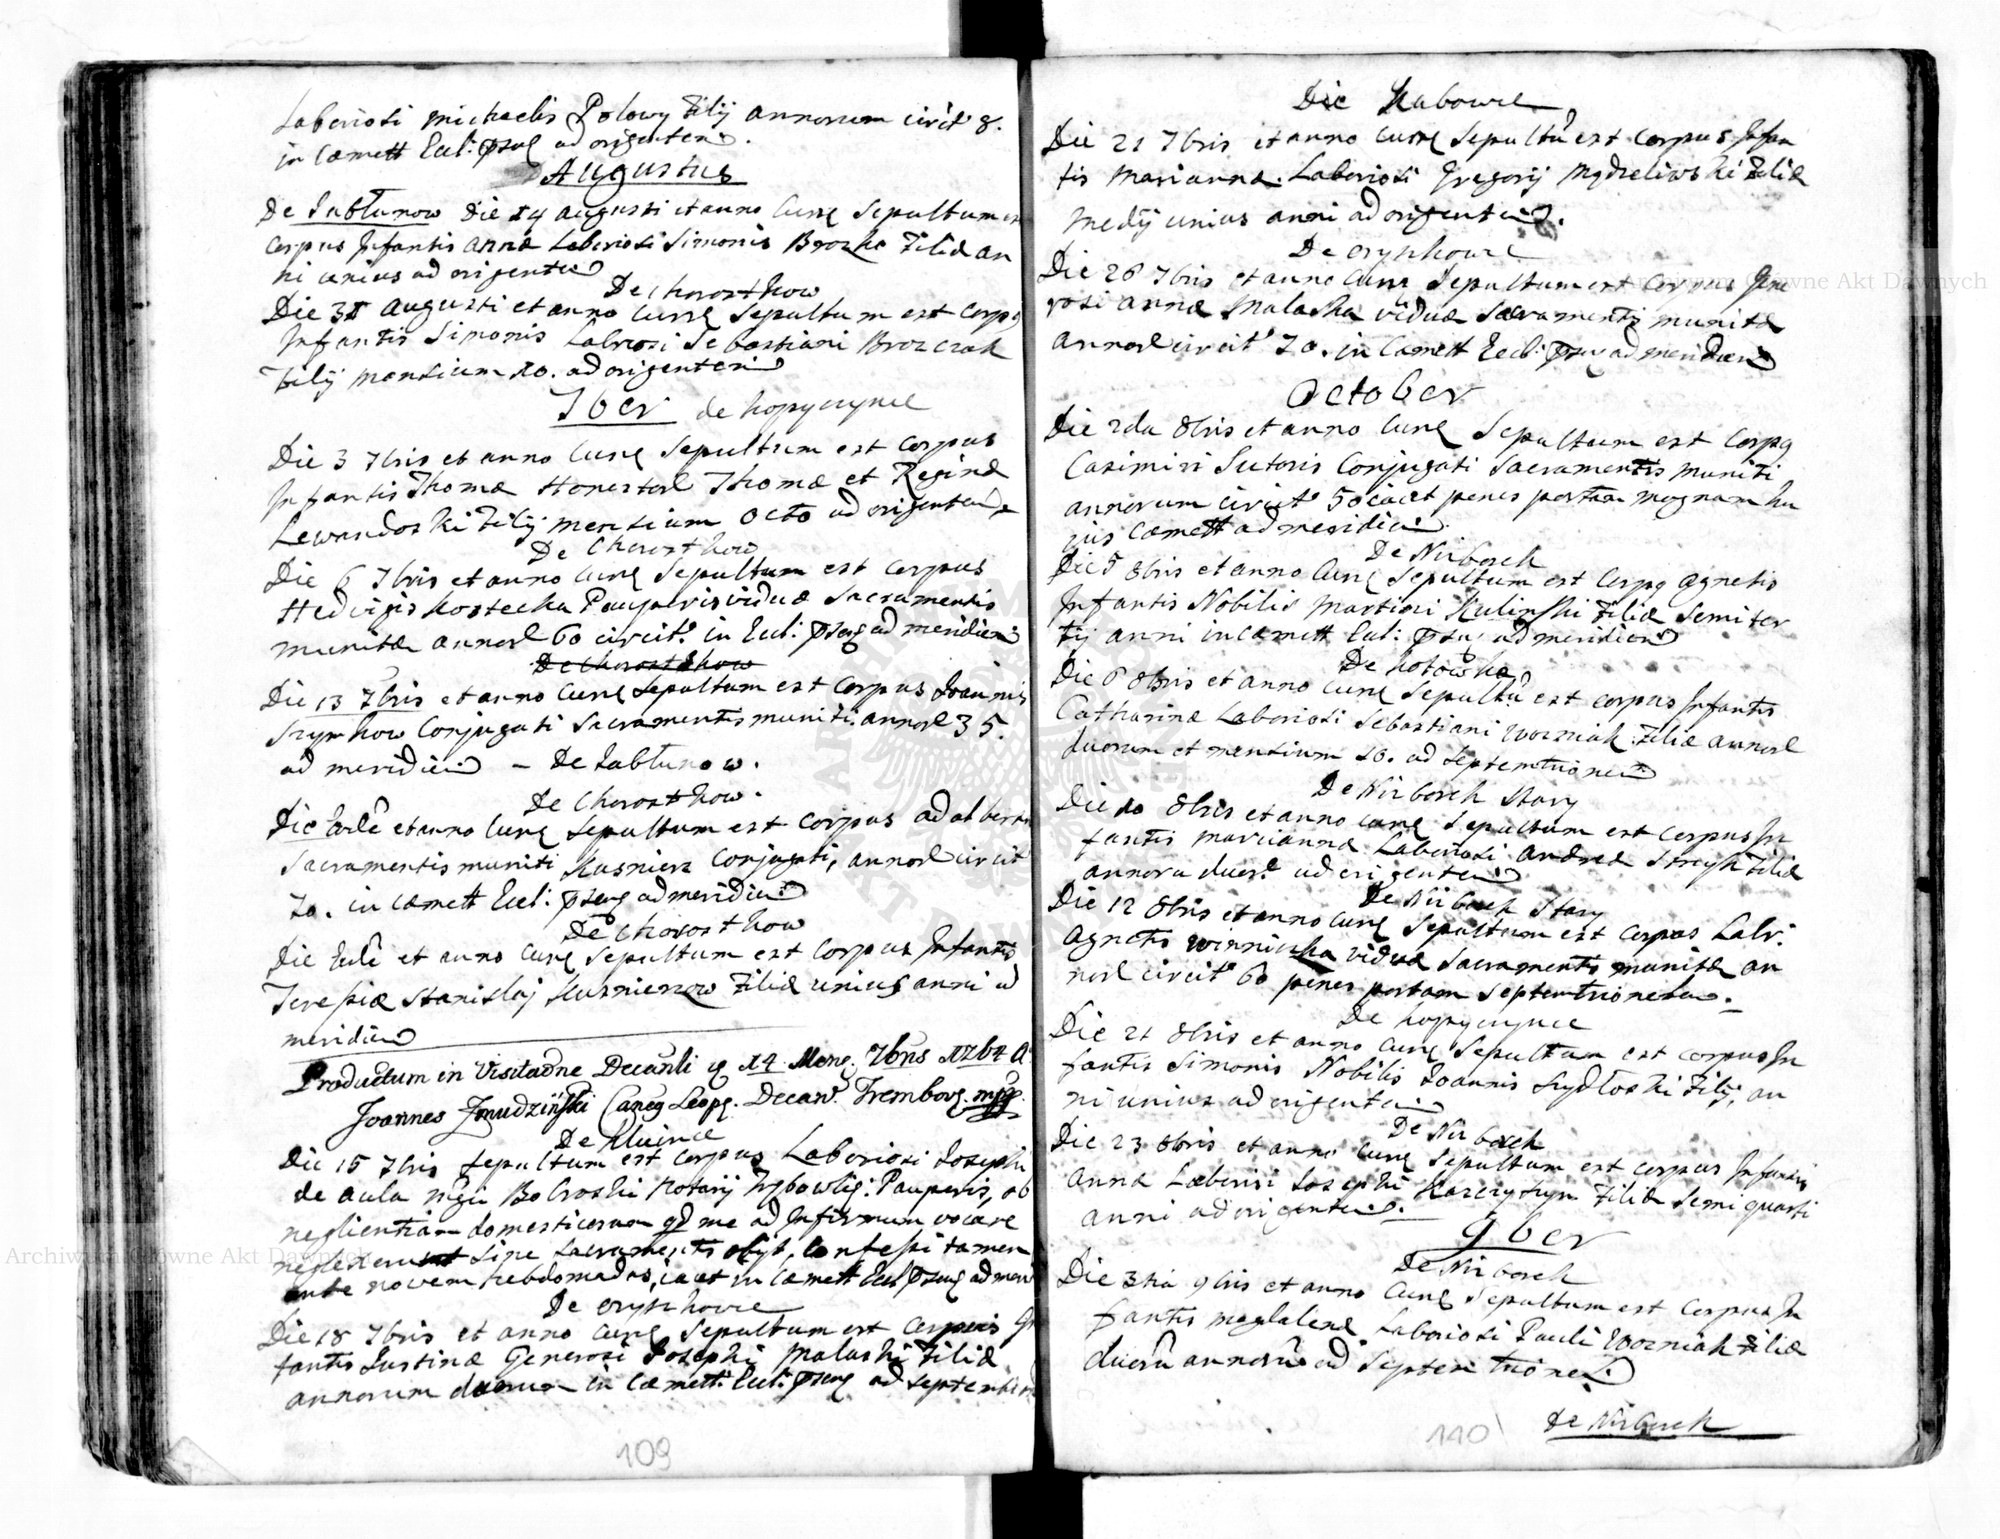 Laboriosi Michaelis Polowy Filij annorum circit 8.
in Cæmett Eccl: ad orientem.
Augustus
De Jabłunow Die 14 augusti et anno Curr Sepultum est
Corpus Infantis Annæ Laboriosi Simonis Brozko Filiæ an
ni unius ad origentem
De Chorostkow
Die 31 Augusti et anno Curr Sepultum est Corpq
Infantis Simonis Labriosi Sebastiani Brozczak
Filij Mensium 10. ad origentem
7ber de Kopyczynce
Die 3 7bris et anno Curr Sepultum est Corpus
Infantis Thomæ Honestor Thomæ et Reginæ
Lewandoski Filij mensium Octo ad origentem
De Chorostkow
Die 6 7bris et anno Curr Sepultum est Corpus
Hedvigis Kostecka Pauperis viduæ Sacramentis
munitæ annor 60 circit. in Eccl: ad meridiem
De Chorostkow
Die 13 7bris et anno Curr Sepultum est Corpus Joannis
Szymkow Conjugati Sacramentis muniti annor 35.
ad meridiem – De Jabłunow.
De Chorostkow.
Die et anno Curr Sepultum est Corpus adalberti
Sacramentis muniti Kusnierz Conjugati, annor circit
70. in Cæmett Eccl: ad meridiem
De Chorostkow
Die et anno Curr Sepultum est Corpus Infantis
Teresiæ Stanislaj Kusnierzow Filiæ unius anni ad
meridiem
Productum in Visitaõne Decanli 14 Mens: 7bris 1764 A.
Joannes Zmudziński Leopo. Decan. Trembow. mpp
De Kluince
Die 15 7bris sepultum est Corpus Laboriosi Josephi
de aula Bobroski Notarij Pauperis, ob
neglientiam domesticorum qd me ad Infirmum vocare
neglexerunt Sine Sacramentis obijt, Confessi tamen
ante novem hebdomadas, iacet in Cæmett Eccl ad meri
De Oryszkowce
Die 18 7bris et anno Curr Sepultum est Corpus In
fantis Justinæ Generosi Josephi Malaski Filiæ
annorum duorum in Cæmett. Eccl: ad septentrion
109
Die Rakowce
Die 21 7bris et anno Curr Sepultũ est Corpus Infan
tis Mariannæ Laboriosi Gregorij Mydzeliwski Filiæ
Medij unius anni ad origentem.
De Oryszkowce
Die 26 7bris et anno Curr Sepultum est Corpus Gene
rosi Annæ Malaska viduæ Sacramentis munitæ
annor circit 70. in Cæmett Eccl: ad meridiem
October
Die 2da 8bris et anno Curr Sepultum est Corpq
Casimiri Sutoris Conjugati Sacramentis muniti
annorum circit 50 iacet penes portam magnam hu
jus Cæmett ad meridiem.
De Nirborek
Die 5 8bris et anno Curr Sepultum est Corpq Agnetis
Infantis Nobilis Martini Kulinski Filiæ Semiter
tij anni in Cæmett Eccl: ad meridiem
De Kotowka
Die 6 8bris et anno Curr Sepultũ est Corpus Infantis
Catharinæ Laboriosi Sebastiani Wozniak Filiæ annor
duorum et mensium 10. ad septemtrionem
De Nirborek Stary
Die 10 8bris et anno Curr Sepultum est Corpus In
fantis Mariannæ Laboriosi Andreæ Stryk Filiæ
annoru duor. ad origentem
De Nirborek Stary
Die 12 8bris et anno Curr Sepultum est Corpus Labr:
Agnetis Winnicka viduæ Sacramentis munitæ an
nor circit 60 penes portam septemtrionelem.
De Kopyczynce
Die 21 8bris et anno Curr Sepultum est Corpus In
fantis Simonis Nobilis Joannis Szydłoski Filij, an
ni unius ad origentem
De Nirborek
Die 23 8bris et anno Curr Sepultum est Corpus Infantis
Annæ Laborisi Josephi Karczysztyn Filiæ Semiquarti
anni ad origentem.
9ber
De Nirborek
Die 3tia 9bris et anno Curr Sepultum est Corpus In
fantis Magdalenæ Laboriosi Pauli Wozniak Filiæ
duorũ annorũ ad Septem trionem.
De Nirborek
110
Archiwum Główne Akt Dawnych
Archiwum Główne Akt Dawnych